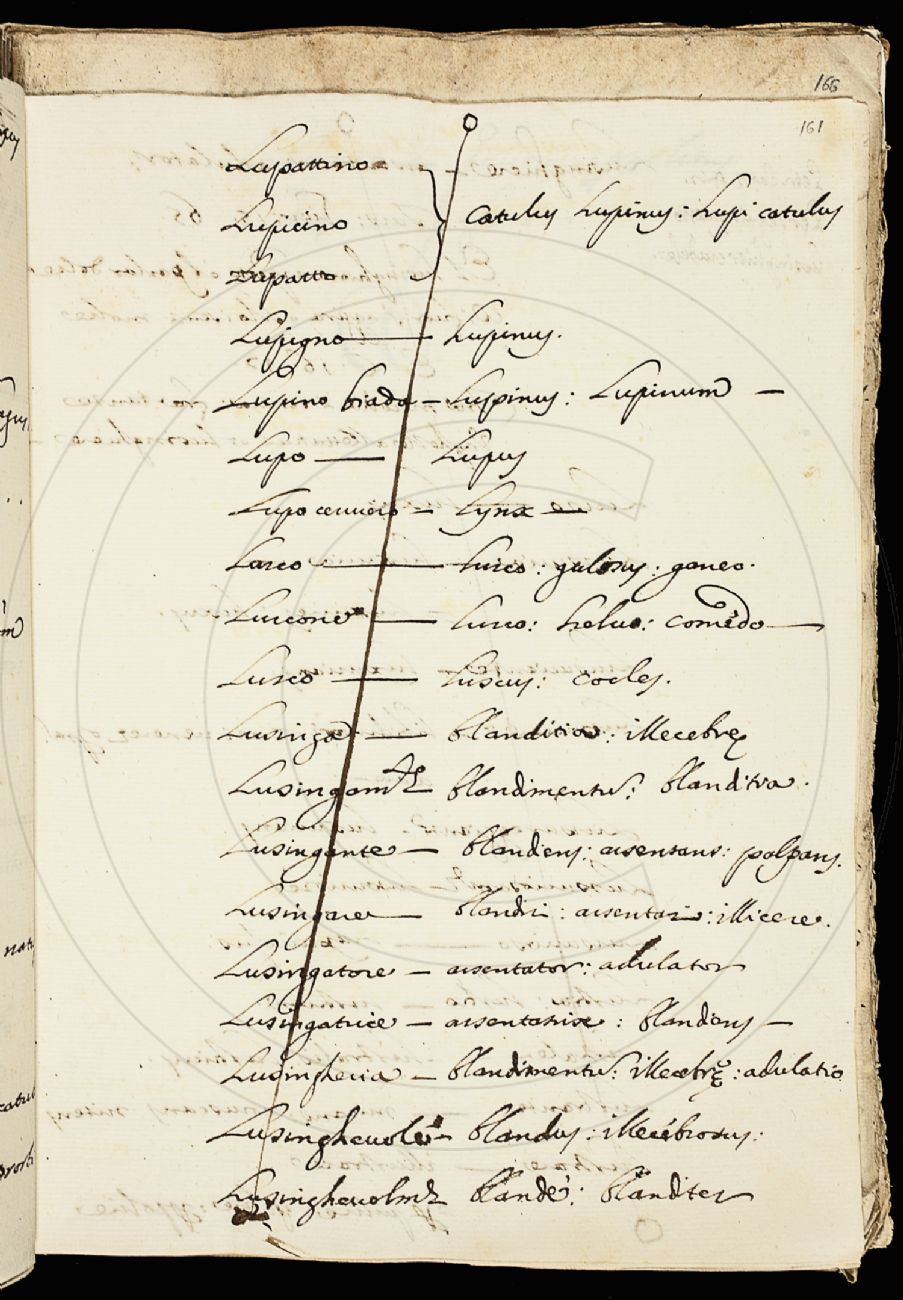 166
161
Lupattino
Lupicino
Lupatto
catulus Lupinus: Lupi catulus
Lupigno — Lupinus.
Lupino biada — Lupinus: Lupinum —
Lupo — Lupus
Lupo cerviero — Lynx —
Lurco — Lurco: gulosus: ganeo.
Lurcone — Lurco: heluo: comedo —
Lusco — Luscus: cocles.
Lusinga — blanditia: illecebrę
Lusingamto blandimentũ: blanditia.
Lusingante — blandiens: assentans: palpans.
Lusingare — blandiri: assentari: illicere.
Lusingatore — assentator: adulator
Lusingatrice — assentatrix: blandiens —
Lusingheria — blandimentũ: illecebrę: adulatio
Lusingheuole — blandus: illecebrosus:
Lusingheuolmte blandè: blanditer